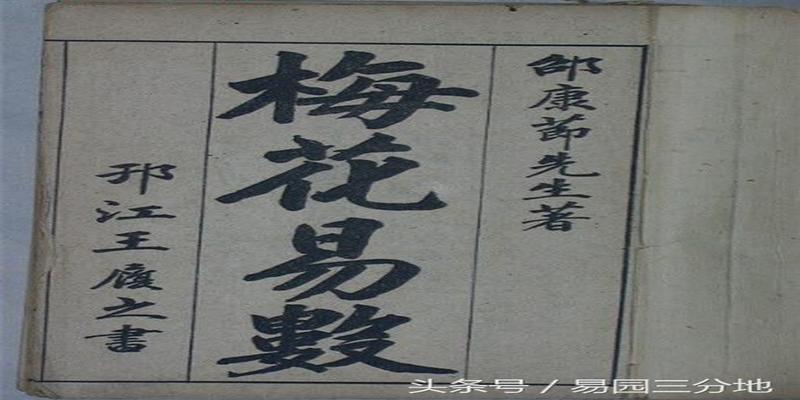 邵康節先生著
梅花易數
邗江王履之書
头条号 / 易园三分地